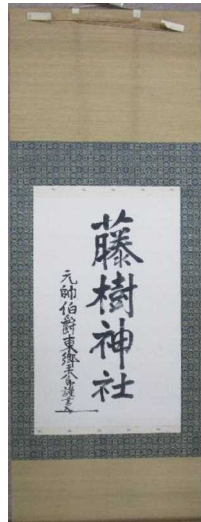 藤樹神社
元帥伯爵東郷平八郎謹書